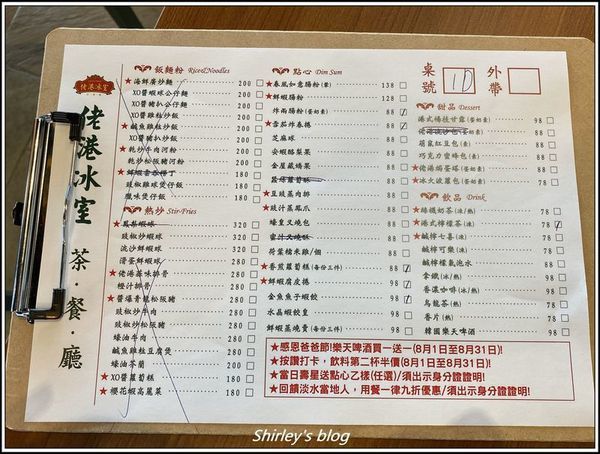 佬港冰室
佬港冰室
茶·餐·廳
飯麵粉 Rice&Noodles
★海鮮廣炒麵 200
XO醬蝦球公仔麵 200
XO醬豬扒公仔麵 200
XO醬蝦炒飯 200
★鹹魚雞粒炒飯 200
XO醬豬扒炒飯 200
★乾炒牛肉河粉 200
乾炒松阪豬河粉 200
豉椒雞球煲仔飯 200
臘味煲仔飯 200
熱炒 Stir-Fries
★鳳梨蝦球 320
豉椒炒蝦球 320
流沙鮮蝦球 320
滑蛋鮮蝦球 280
★佬港蒜味排骨 280
橙汁排骨 280
★醬爆青龍松阪豬 280
豉椒炒松阪豬 280
豉椒炒牛肉 280
蠔油牛肉 280
鹹魚雞粒豆腐煲 280
蠔油芥蘭 200
★XO醬蘿蔔糕 180
★櫻花蝦高麗菜 180
點心 Dim Sum
★春風如意腸粉(葷) 138
★鮮蝦腸粉 128
炸兩腸粉(蛋奶素) 98
★雪茄炸春捲 88
芝麻球 88
安蝦酪梨果 88
金屋藏嬌果 88
★豆豉蒸肉排 88
★豉汁蒸鳳爪 88
蠔皇叉燒包 88
蜜汁叉燒酥 88
荷葉糯米雞/個 88
★香煎蘿蔔糕(每份三件) 88
★鮮蝦腐皮捲 98
金魚魚子蝦餃 98
水晶蝦餃皇 98
鮮蝦蒸燒賣(每份三件) 88
桌號 1D
外帶
甜品 Dessert
港式楊枝甘露(蛋奶素) 98
萌鼠紅豆包(素) 88
巧克力蜜蜂包(素) 88
★佬港焗蛋塔(蛋奶素) 88
★冰火菠蘿包(蛋奶素) 78
飲品 Drink
★絲襪奶茶(冰/熱) 78
★港式檸檬茶(冰/熱) 78
★鹹檸七喜(冰/熱) 78
鹹檸可樂(冰/熱) 78
鹹檸檬氣泡水 88
拿鐵(冰/熱) 88
香濃咖啡(冰/熱) 88
烏龍茶(熱) 78
香片(熱) 78
韓國樂天啤酒 98
★感恩爸爸節!樂天啤酒買一送一(8月1日至8月31日)!
★按讚打卡,飲料第二杯半價(8月1日至8月31日)!
★當日壽星送點心乙樣(任選)/須出示身分證證明!
★回饋淡水當地人,用餐一律九折優惠/須出示身分證證明!
Shirley's blog